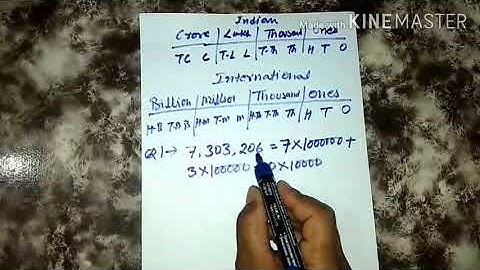 Made with KINEMASTER
Indian
Crore | Lakh | Thousand | Ones
TC C | T-L L | T-Th Th | H T O
International
Billion | Million | Thousand | Ones
H-B T-B B | H-M T-M M | H-Th T-Th Th | H T O
Q1→ 7,303,206 = 7×1000000+
3×100000 0×10000